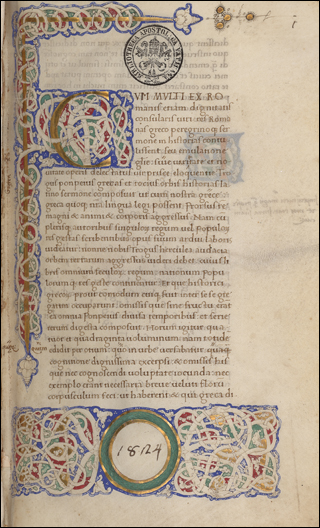 CVM MVLTI EX RO
manis etiam dignitatis
consularis uiri res Roma
nas greco peregrinoque ser
mone in historias contu
lissent: seu emulatione
glorie: siue uarietate et no
uitate operis delectatus uir prisce eloquentie Tro
gus pompeius grecas et totius orbis historias la
tino sermone composuit ut cum nostra grece
greca quoque nostra lingua legi possent. Prorsus rem
magni et animi et corporis aggressus. Nam cum
plerisque autoribus singulorum regum uel populorum
res gestas scribentibus opus suum ardui laboris
uideatur: nonne nobis Trogus herculea audacia
orbem terrarum aggressus uideri debet: cuius li
bris omnium seculorum: regum: nationum: populo
rumque res gestae continentur. Et que historici
grecorum prout commodum cuique fuit inter sese
occuparunt: omissis que sine fructu erant
ea omnia Pompeius diuisa temporibus et serie
rerum digesta composuit. Horum igitur quatuor
et quadraginta uoluminum nam totidem
edidit per otium: quo in urbe uersabatur quaeque
cognitione dignissima excerpsi: et omissis his
que nec cognoscendi uoluptate iocunda: nec
exemplo erant necessaria: breue ueluti florum
corpusculum feci: ut haberent et qui greca di
18124